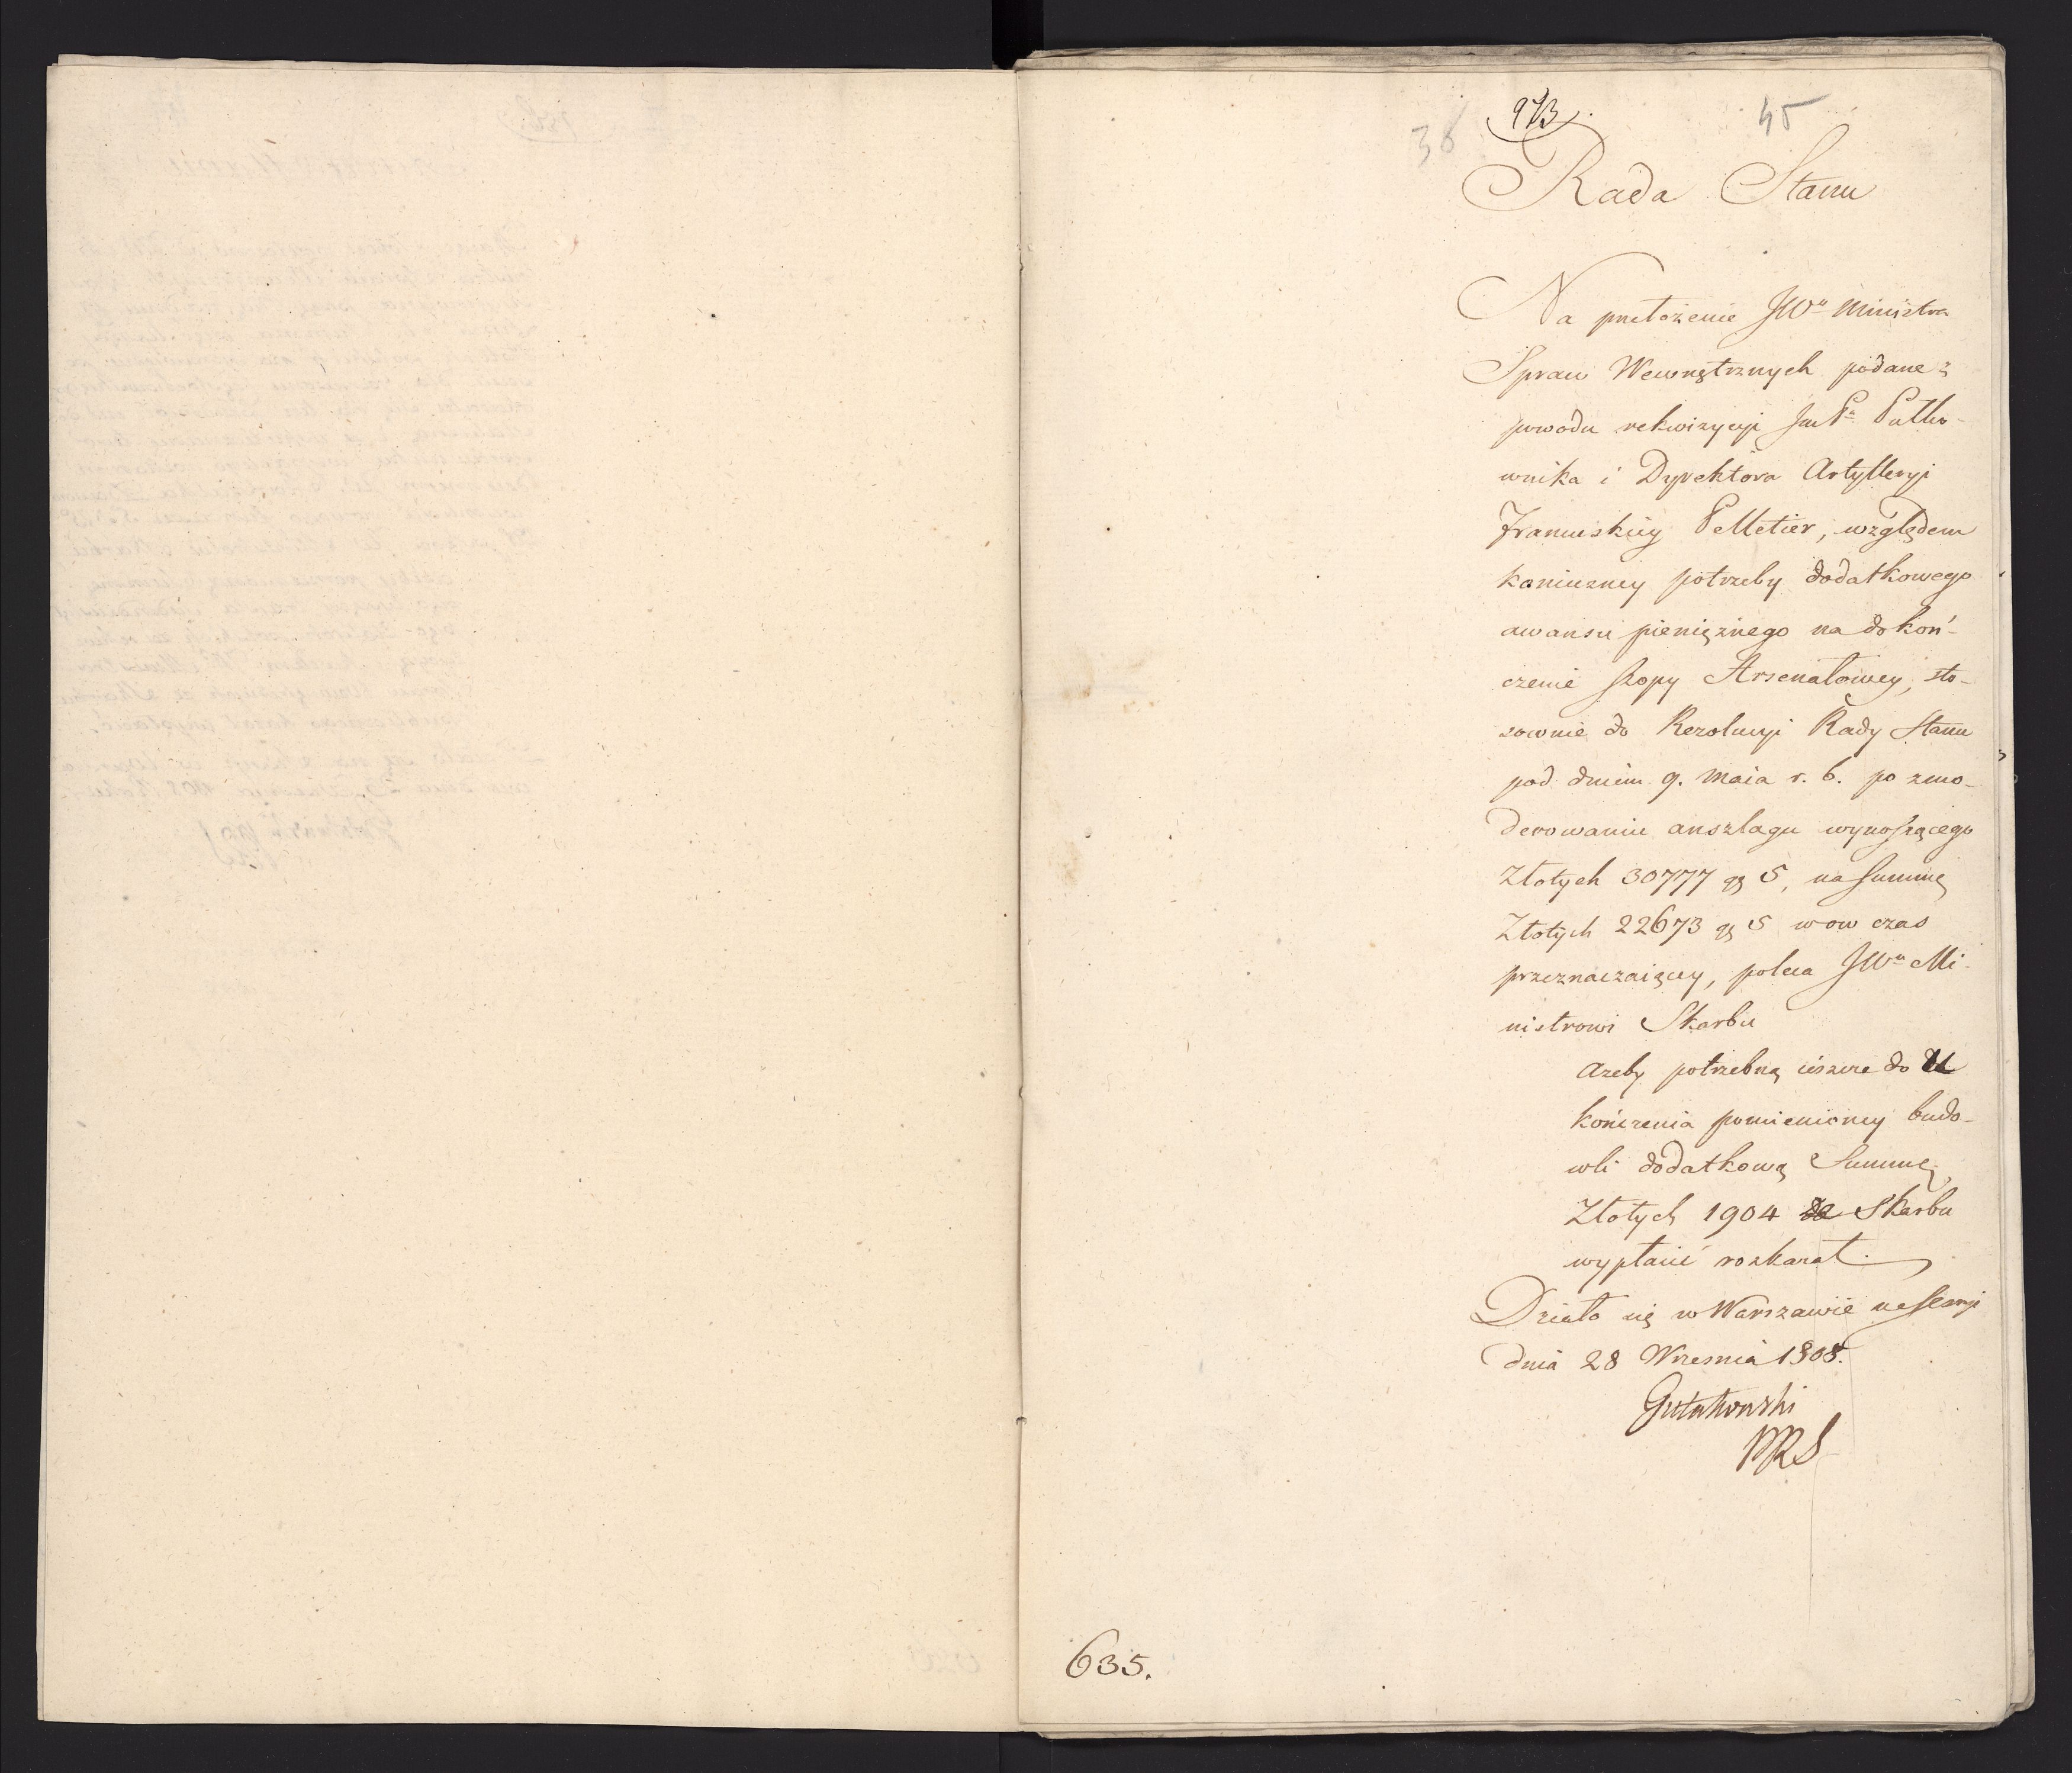 973.
36
45
Rada Stanu
Na przełożenie JWo Ministra
Spraw Wewnętrznych podane z
powodu rekwizycyi JmPa Pułko-
wnika i Dyrektora Artylleryi
Francuskiey Pelletier, względem
konieczney potrzeby dodatkowego
awansu pieniężnego na dokoń-
czenie szopy Arsenałowey, sto-
sownie do Rezolucyi Rady Stanu
pod dniem 9. Maia r. b. po zmo-
derowaniu anszlagu wynoszącego
Złotych 30777 gr 5, na Summę
Złotych 22673 gr 5 wow czas
przeznaczaiącey, poleca JWu Mi-
nistrowi Skarbu
Azeby potrzebną ieszcze do U
kończenia pomienioney budo-
wli dodatkową Summę
Złotych 1904 ze Skarbu
wypłacić rozkazał.
Działo się w Warszawie na Sessyi
dnia 28 Wrzesnia 1808.
Gutakowski
PRS
635.